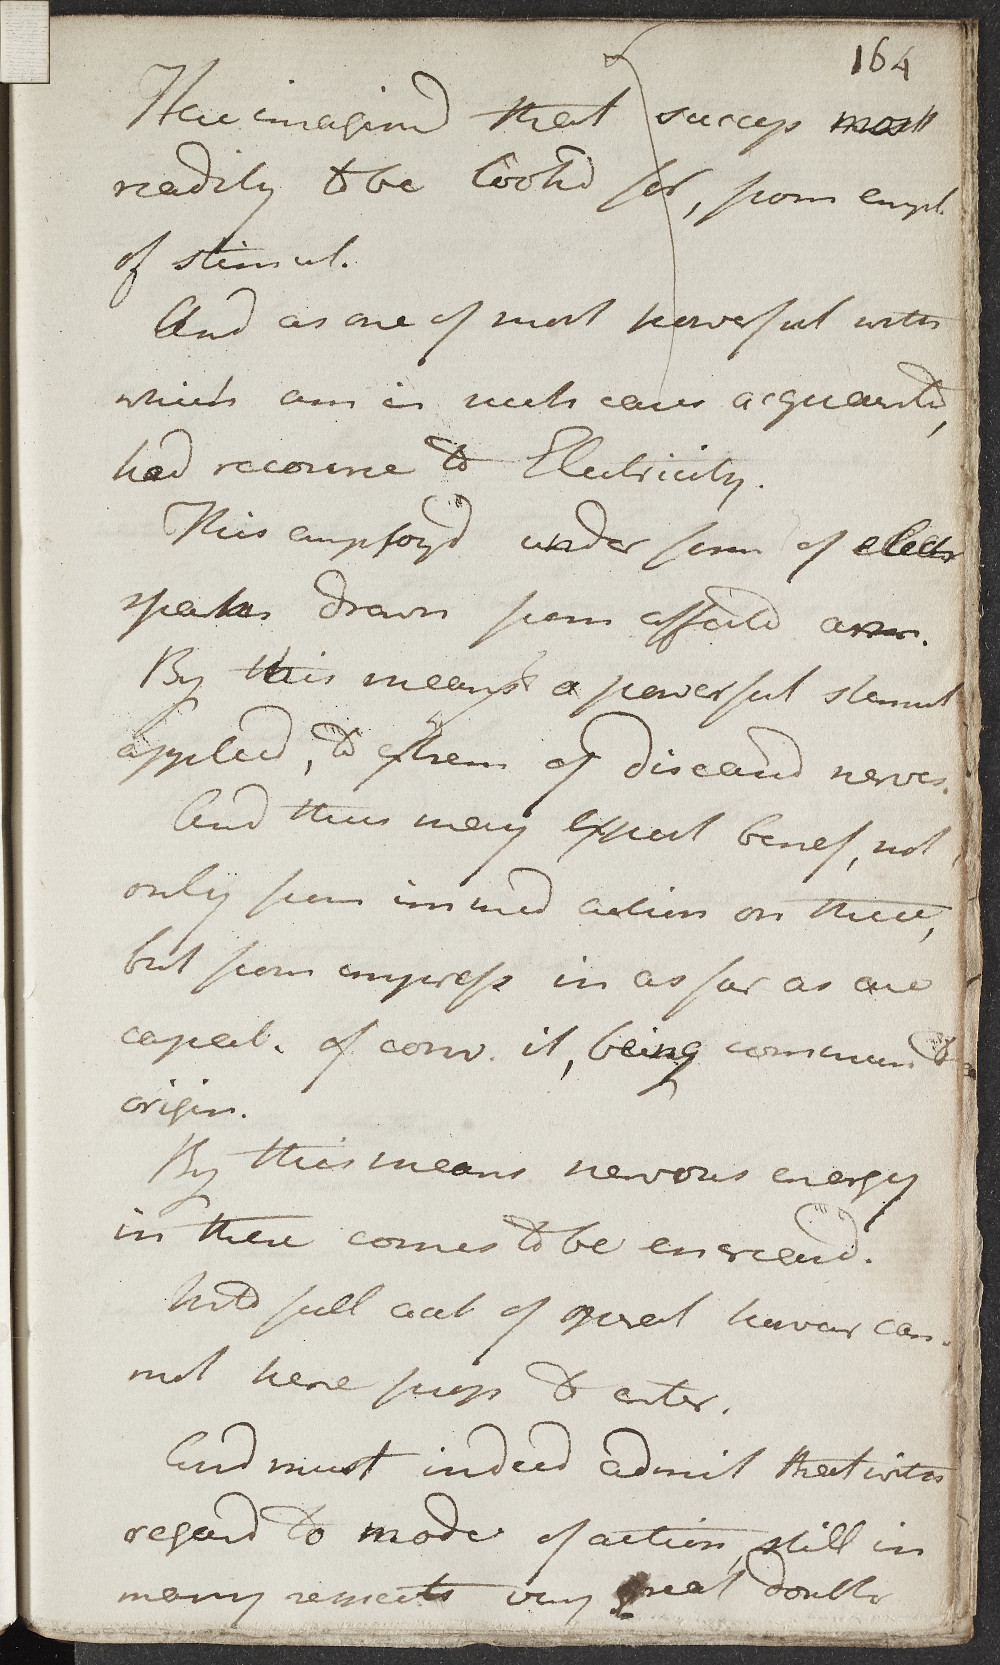 164
Hav imagined that success most
readily to be lookd for, from empl.
of stimul.
And as one of most powerful with
which am in such cases acquainted,
had recourse to Electricity.
This employd under form of electr
sparks drawn from affectd arm.
By this means a powerful stimul
applied, to of diseased nerves.
And thus may expect benef, not
only from immed action on these,
but from impress in as far as are
capab. of conv. it, being commun to
origin.
By this means nervous energy
in these comes to be increasd.
Into full acct of operat however can-
not here prop to enter.
And must indeed admit that with
regard to mode of action, still in
many respects very great doubts